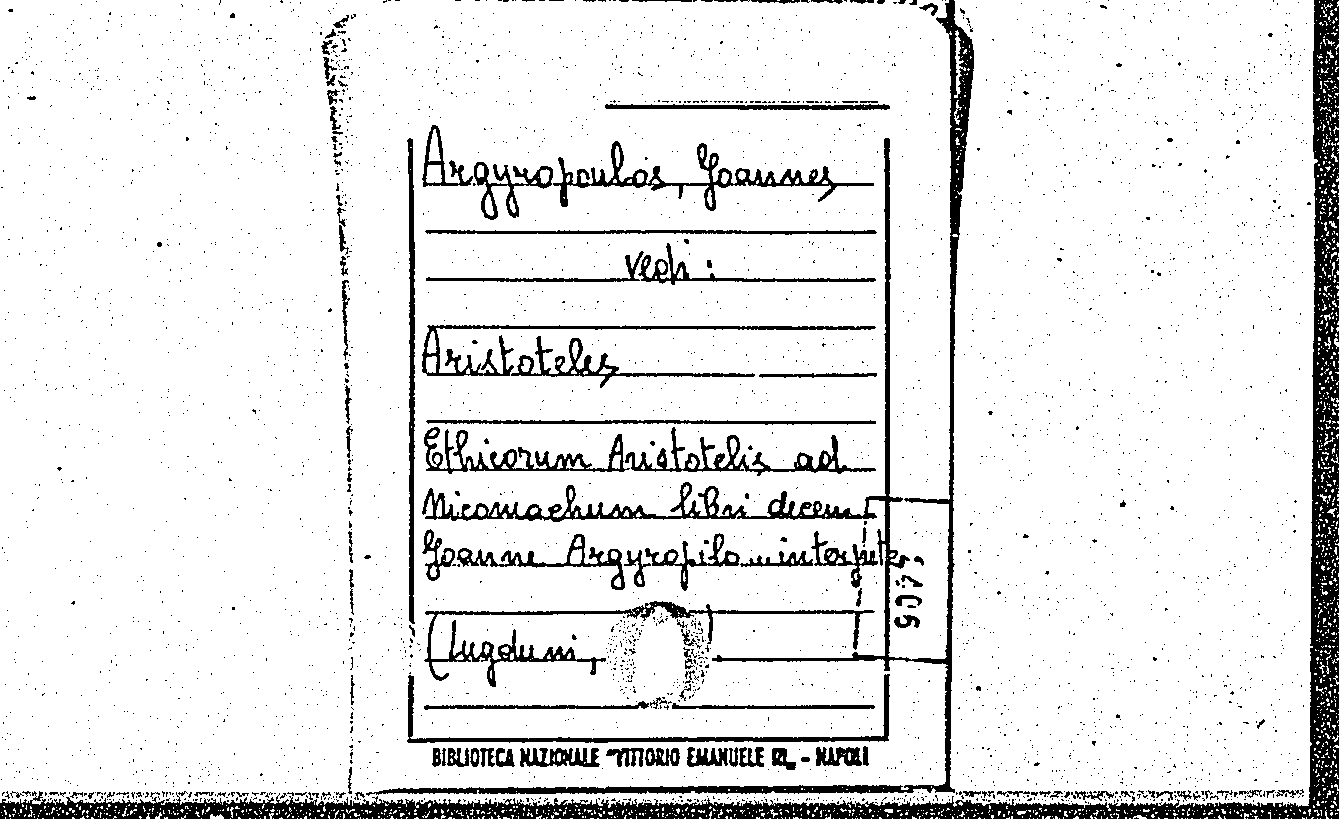 Argyropoulos, Joannes
vedi:
Aristoteles
Ethicorum Aristotelis ad
Nicomachum libri decem
Joanne Argyropilo... interprete,
(Lugduni, )
BIBLIOTECA NAZIONALE "VITTORIO EMANUELE III" - NAPOLI